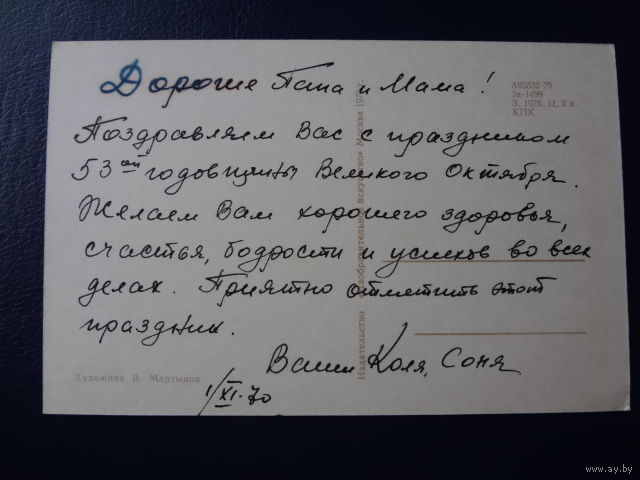 Дорогие Папа и Мама!
Поздравляем Вас с праздником
53ой годовщины Великого Октября.
Желаем Вам хорошего здоровья,
счастья, бодрости и успехов во всех
делах. Приятно отметить этот
праздник.
Ваши Коля, Соня
1/XI-70
А05532-70
За-1499
З. 1076. Ц. 2 к.
КПК
Издательство «Изобразительное искусство» Москва 1970 г.
Художник В. Мартынов
www.ay.by